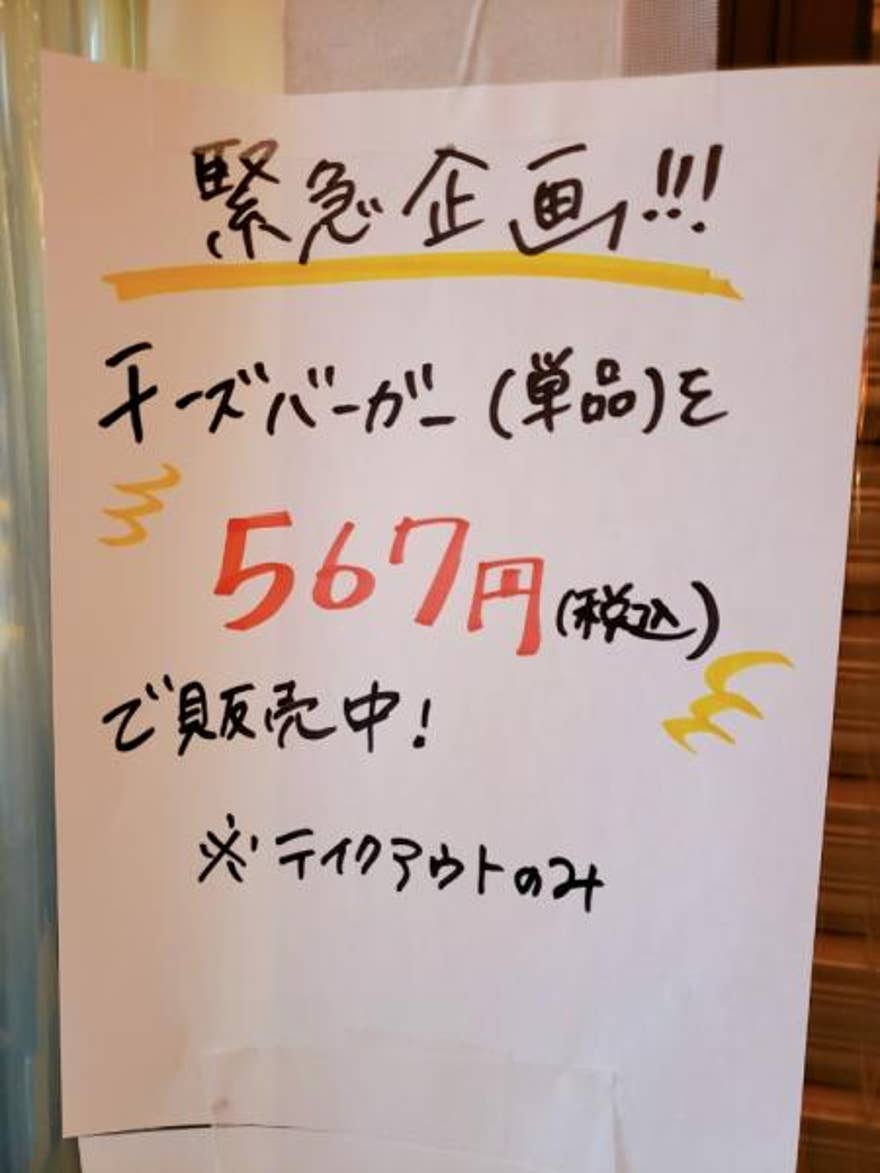 緊急企画!!!
チーズバーガー(単品)を
567円(税込)
で販売中!
※テイクアウトのみ